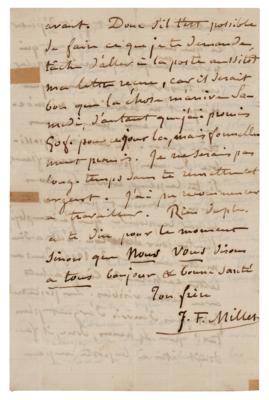 avant. Donc s'il t'est possible
de faire ce que je te demande,
tâche d'aller à la poste aussitôt
ma lettre reçue, car il serait
bon que la chose m'arrive Sa
medi, d'autant que j'ai promis
50f. pour ce jour là, mais formelle
ment promis. Je ne serai pas
long temps sans te remettre cet
argent. J'ai pu recommencer
à travailler. Rien de plus
à te dire pour le moment
sinon que Nous Vous disons
à tous bonjour & bonne santé
Ton frère
J. F. Millet